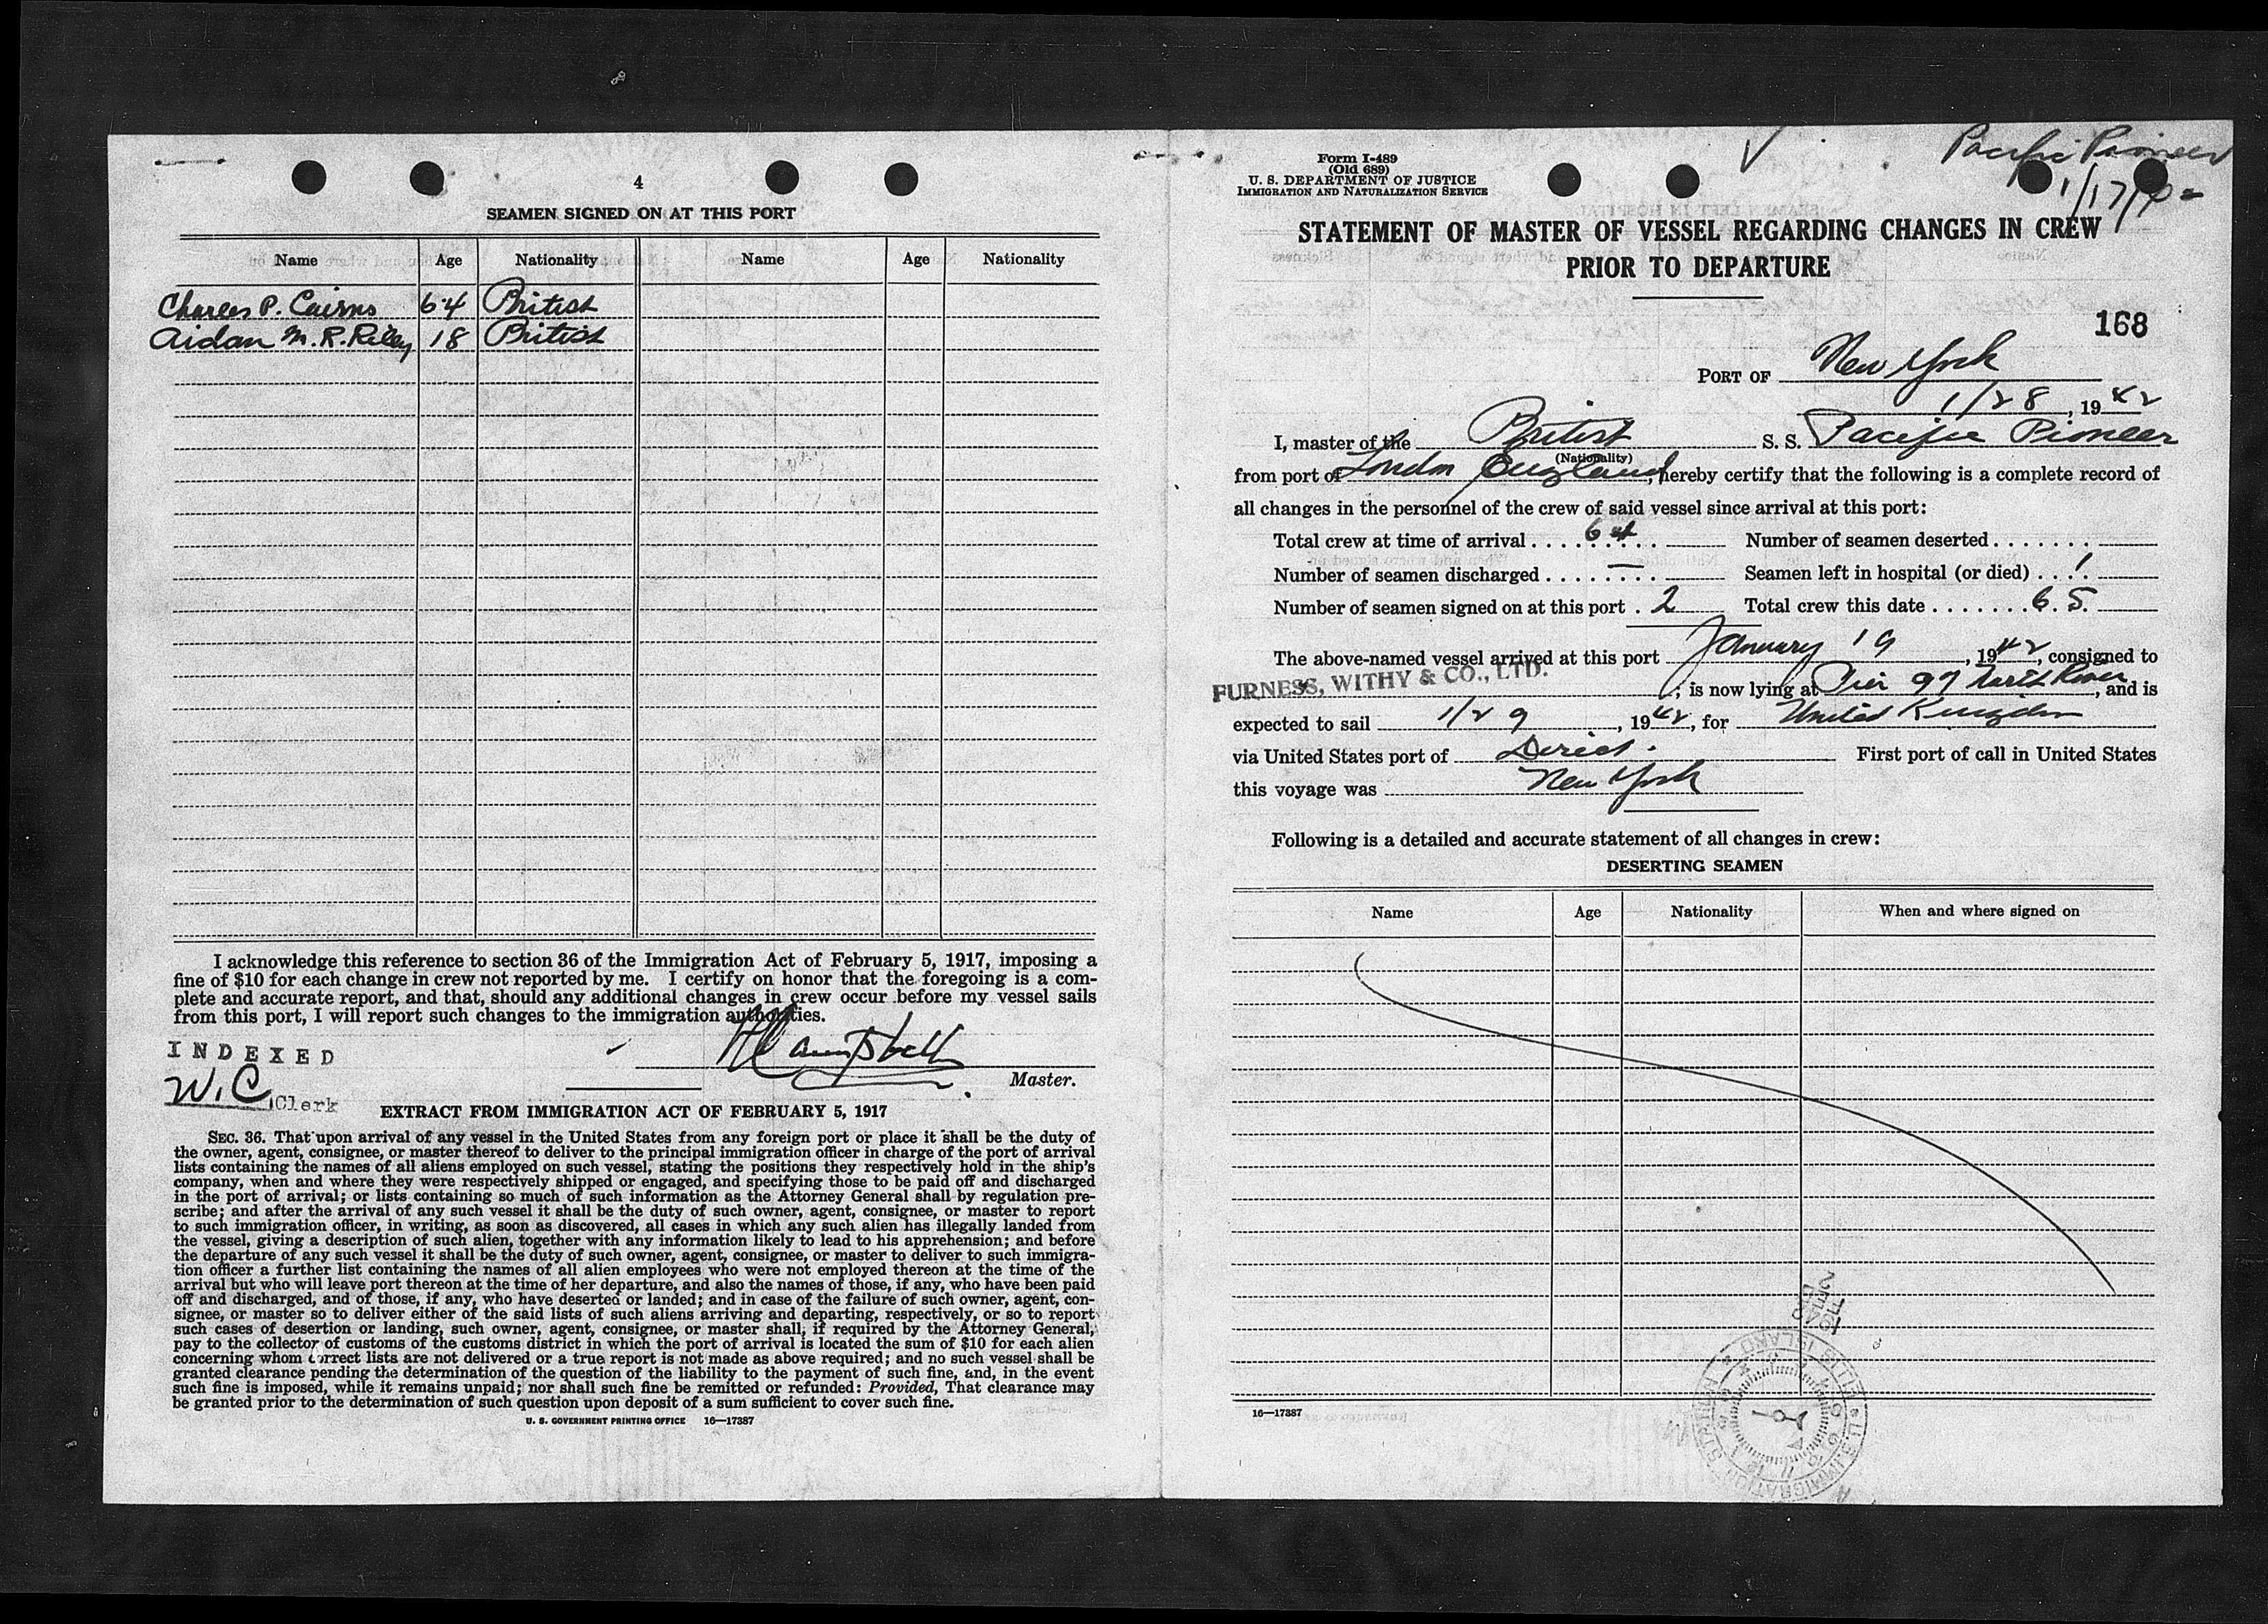 4
SEAMEN SIGNED ON AT THIS PORT
Name Age Nationality Name Age Nationality
Charles P. Cairns 64 British
Aidan M. R. Riley 18 British
I acknowledge this reference to section 36 of the Immigration Act of February 5, 1917, imposing a
fine of $10 for each change in crew not reported by me. I certify on honor that the foregoing is a com-
plete and accurate report, and that, should any additional changes in crew occur before my vessel sails
from this port, I will report such changes to the immigration authorities.
INDEXED
W.C Clerk
Master.
EXTRACT FROM IMMIGRATION ACT OF FEBRUARY 5, 1917
SEC. 36. That upon arrival of any vessel in the United States from any foreign port or place it shall be the duty of
the owner, agent, consignee, or master thereof to deliver to the principal immigration officer in charge of the port of arrival
lists containing the names of all aliens employed on such vessel, stating the positions they respectively hold in the ship's
company, when and where they were respectively shipped or engaged, and specifying those to be paid off and discharged
in the port of arrival; or lists containing so much of such information as the Attorney General shall by regulation pre-
scribe; and after the arrival of any such vessel it shall be the duty of such owner, agent, consignee, or master to report
to such immigration officer, in writing, as soon as discovered, all cases in which any such alien has illegally landed from
the vessel, giving a description of such alien, together with any information likely to lead to his apprehension; and before
the departure of any such vessel it shall be the duty of such owner, agent, consignee, or master to deliver to such immigra-
tion officer a further list containing the names of all alien employees who were not employed thereon at the time of the
arrival but who will leave port thereon at the time of her departure, and also the names of those, if any, who have been paid
off and discharged, and of those, if any, who have deserted or landed; and in case of the failure of such owner, agent, con-
signee, or master so to deliver either of the said lists of such aliens arriving and departing, respectively, or so to report
such cases of desertion or landing, such owner, agent, consignee, or master shall, if required by the Attorney General,
pay to the collector of customs of the customs district in which the port of arrival is located the sum of $10 for each alien
concerning whom correct lists are not delivered or a true report is not made as above required; and no such vessel shall be
granted clearance pending the determination of the question of the liability to the payment of such fine, and, in the event
such fine is imposed, while it remains unpaid; nor shall such fine be remitted or refunded: Provided, That clearance may
be granted prior to the determination of such question upon deposit of a sum sufficient to cover such fine.
U. S. GOVERNMENT PRINTING OFFICE 16—17387
Pacific Pioneer
1/17/42
Form I-489
(Old 689)
U. S. DEPARTMENT OF JUSTICE
IMMIGRATION AND NATURALIZATION SERVICE
STATEMENT OF MASTER OF VESSEL REGARDING CHANGES IN CREW
PRIOR TO DEPARTURE
168
PORT OF New York
1/28, 1942
I, master of the British S. S. Pacific Pioneer
(Nationality)
from port of London England, hereby certify that the following is a complete record of
all changes in the personnel of the crew of said vessel since arrival at this port:
Total crew at time of arrival . . . . 64 Number of seamen deserted . . . . . . .
Number of seamen discharged . . . . — Seamen left in hospital (or died) . . . 1
Number of seamen signed on at this port . 2 Total crew this date . . . . . . . 65
The above-named vessel arrived at this port January 19, 1942, consigned to
FURNESS, WITHY & CO., LTD. ; is now lying at Pier 97 North River, and is
expected to sail 1/29, 1942, for United Kingdom
via United States port of Direct. First port of call in United States
this voyage was New York
Following is a detailed and accurate statement of all changes in crew:
DESERTING SEAMEN
Name Age Nationality When and where signed on
16—17387
1942
U.S. IMMIGRATION STATION ELLIS ISLAND